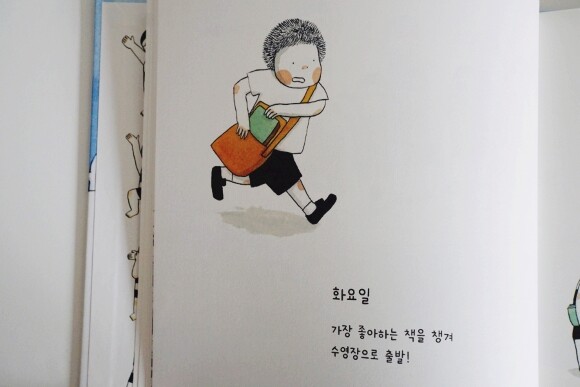 화요일
가장 좋아하는 책을 챙겨
수영장으로 출발!